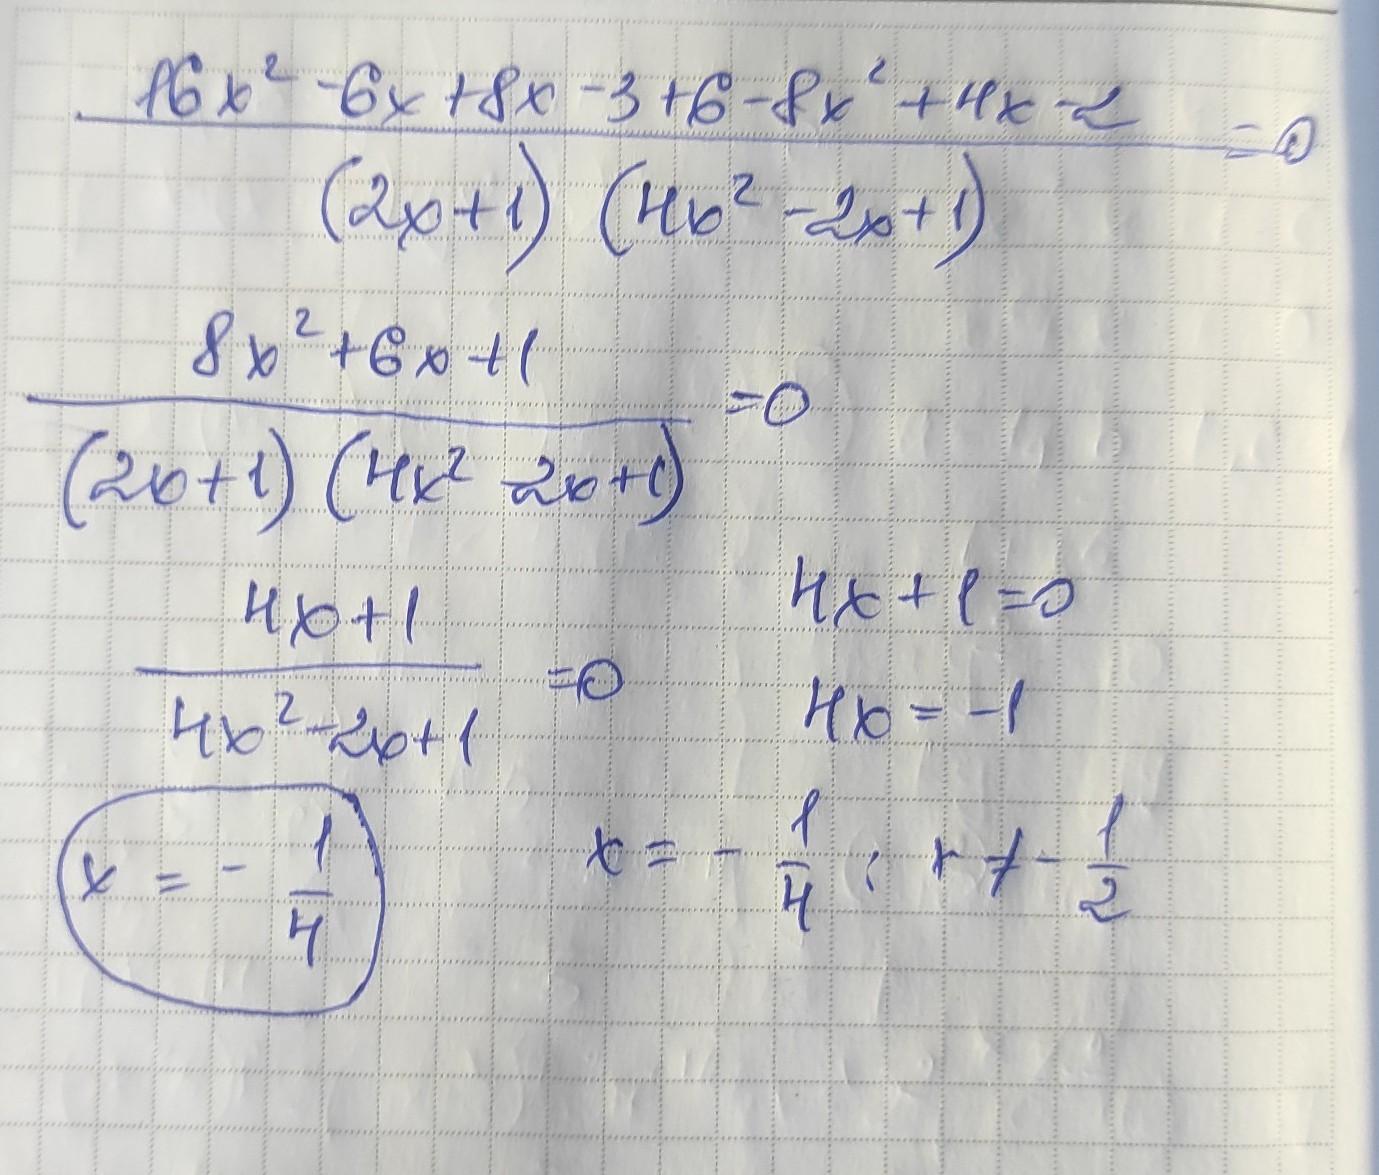 16x² -6x+8x-3+6-8x²+4x-2
=0
(2x+1) (4x²-2x+1)
8x²+6x+1
=0
(2x+1) (4x² -2x+1)
4x+1
=0
4x²-2x+1
4x+1=0
4x=-1
x = - 1/4
x = - 1/4 ; x ≠ - 1/2